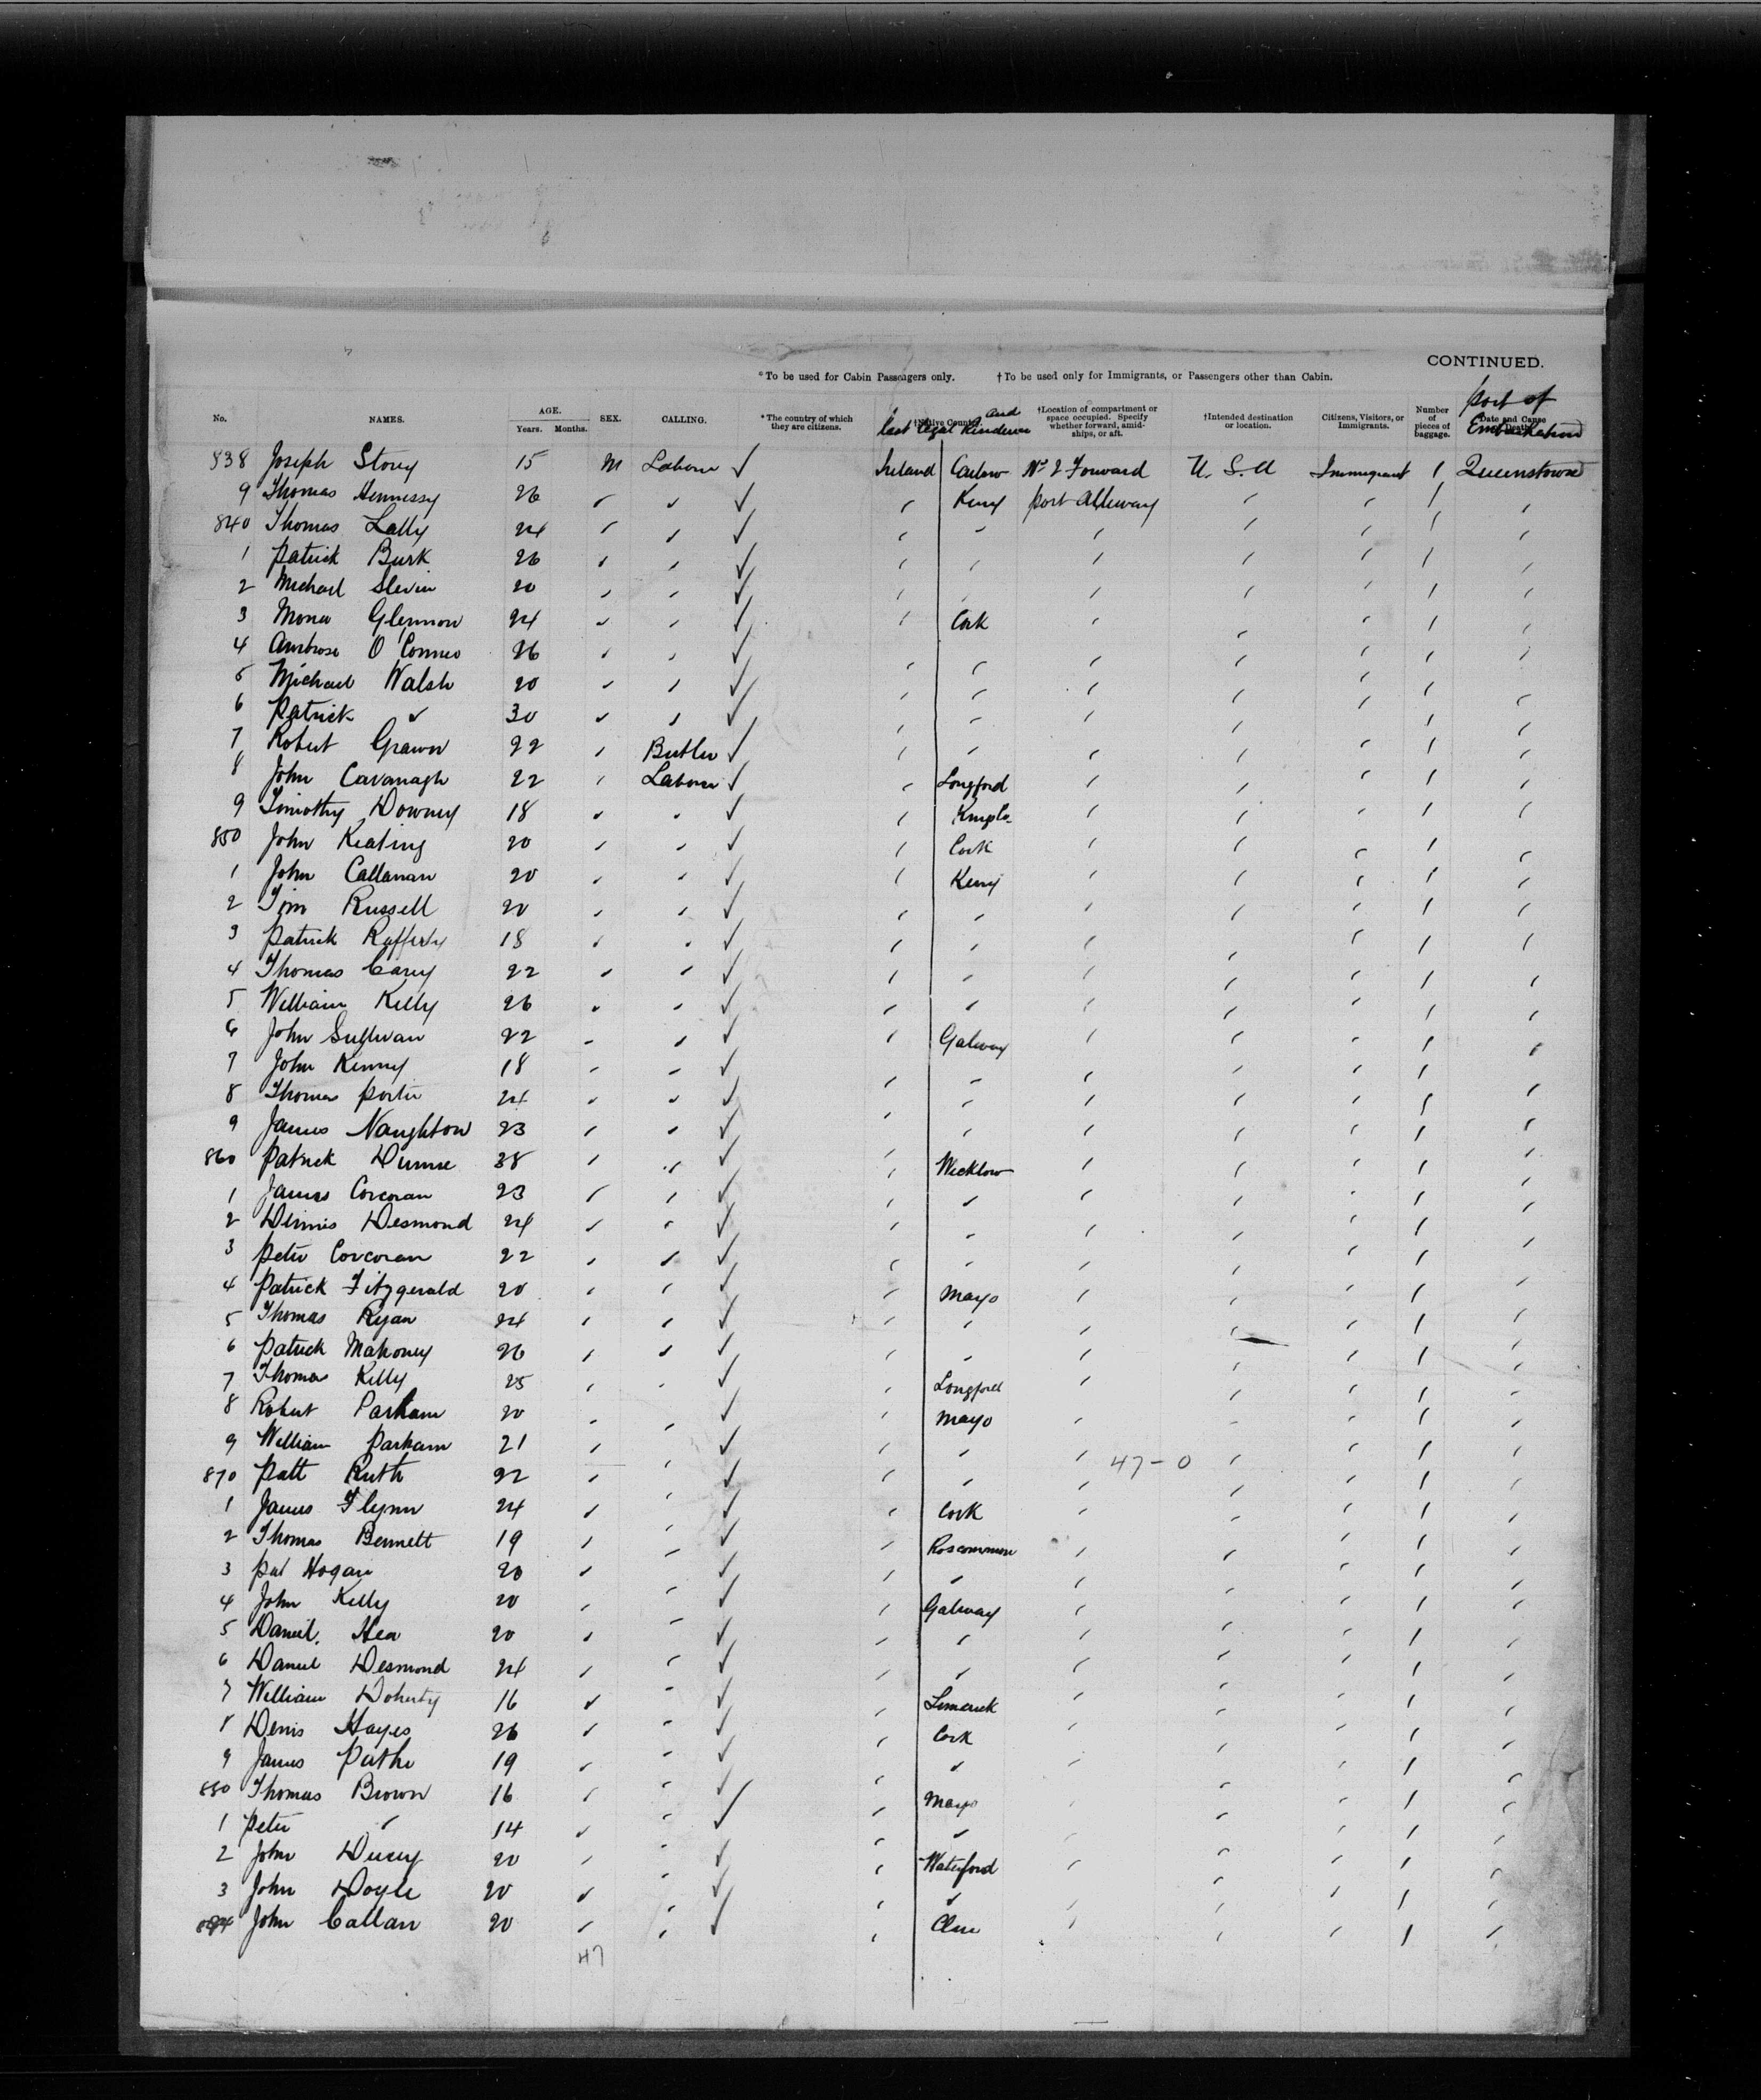 CONTINUED.
*To be used for Cabin Passengers only. †To be used only for Immigrants, or Passengers other than Cabin.
No. NAMES. AGE. Years. Months. SEX. CALLING. *The country of which they are citizens. †Native Country. and last legal Residence †Location of compartment or space occupied. Specify whether forward, amidships, or aft. †Intended destination or location. Citizens, Visitors, or Immigrants. Number of pieces of baggage. Date and Cause of Death. Port of Embarkation
838 Joseph Storey 15 M Labour ✓ Ireland Carlow No 2 Forward U.S.A Immigrant 1 Queenstown
9 Thomas Hennessy 26 " " ✓ " Kerry port Alleway " " 1 "
840 Thomas Lally 24 " " ✓ " " " " " 1 "
1 Patrick Burk 26 " " ✓ " " " " " 1 "
2 Michael Slevin 20 " " ✓ " " " " " 1 "
3 Glennon 24 " " ✓ " Cork " " " 1 "
4 Ambrose O'Connor 26 " " ✓ " " " " " 1 "
5 Michael Walsh 20 " " ✓ " " " " " 1 "
6 Patrick " 30 " " ✓ " " " " " 1 "
7 Robert 22 " Butler ✓ " " " " " 1 "
8 John Cavanagh 22 " Labour ✓ " Longford " " " 1 "
9 Timothy Downey 18 " " ✓ " " " " 1 "
850 John Keating 20 " " ✓ " Cork " " " 1 "
1 John Callanan 20 " " ✓ " Kerry " " " 1 "
2 Tim Russell 20 " " ✓ " " " " " 1 "
3 Patrick Rafferty 18 " " ✓ " " " " " 1 "
4 Thomas Carey 22 " " ✓ " " " " " 1 "
5 William Kelly 26 " " ✓ " " " " " 1 "
6 John Sullivan 22 " " ✓ " Galway " " " 1 "
7 John Kenny 18 " " ✓ " " " " " 1 "
8 Thomas Porter 24 " " ✓ " " " " " 1 "
9 James Naughton 23 " " ✓ " " " " " 1 "
860 Patrick Dunne 38 " " ✓ " Wicklow " " " 1 "
1 James Corcoran 23 " " ✓ " " " " " 1 "
2 Dennis Desmond 24 " " ✓ " " " " " 1 "
3 Peter Corcoran 22 " " ✓ " " " " " 1 "
4 Patrick Fitzgerald 20 " " ✓ " Mayo " " " 1 "
5 Thomas Ryan 24 " " ✓ " " " " " 1 "
6 Patrick Mahoney 26 " " ✓ " " " " " 1 "
7 Thomas Kelly 25 " " ✓ " Longford " " " 1 "
8 Robert Parkam 20 " " ✓ " Mayo " " " 1 "
9 William Parkam 21 " " ✓ " " " 47-0 " " 1 "
870 Patt Ruth 22 " " ✓ " " " " " 1 "
1 James Flynn 24 " " ✓ " Cork " " " 1 "
2 Thomas Bennett 19 " " ✓ " Roscommon " " " 1 "
3 Pat Hogan 20 " " ✓ " " " " " 1 "
4 John Kelly 20 " " ✓ " Galway " " " 1 "
5 Daniel Hea 20 " " ✓ " " " " " 1 "
6 Daniel Desmond 24 " " ✓ " " " " " 1 "
7 William Doherty 16 " " ✓ " Limerick " " " 1 "
8 Denis Hayes 26 " " ✓ " Cork " " " 1 "
9 James 19 " " ✓ " " " " " 1 "
880 Thomas Brown 16 " " ✓ " Mayo " " " 1 "
1 Peter " 14 " " ✓ " " " " " 1 "
2 John Ducey 20 " " ✓ " Waterford " " " 1 "
3 John Doyle 20 " " ✓ " " " " " 1 "
884 John Callan 20 " " ✓ " Clare " " " 1 "
47